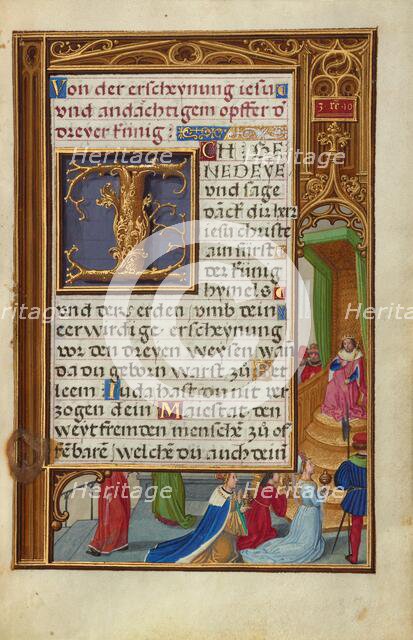 Von der erscheynung iesu
vnd andachtigem opffer d
dreyer künig:
I CH BE
NEDEYE
vnd sage
danck du her
iesu christe
ain fürst
der künig
hymels
vnnd der erden vmb dein
eerwirdige erscheynung
vor den dreyen weysen wan̄
da du geborn warst zů Bet
leem Inda hast du nit ver
zogen dein Maiestat den
weyt fremden menschē zů of
fēbarē, welchē du auch dein
3·re·10
Heritage
Heritage
Heritage
Heritage
Heritage
Heritage
Heritage
Heritage